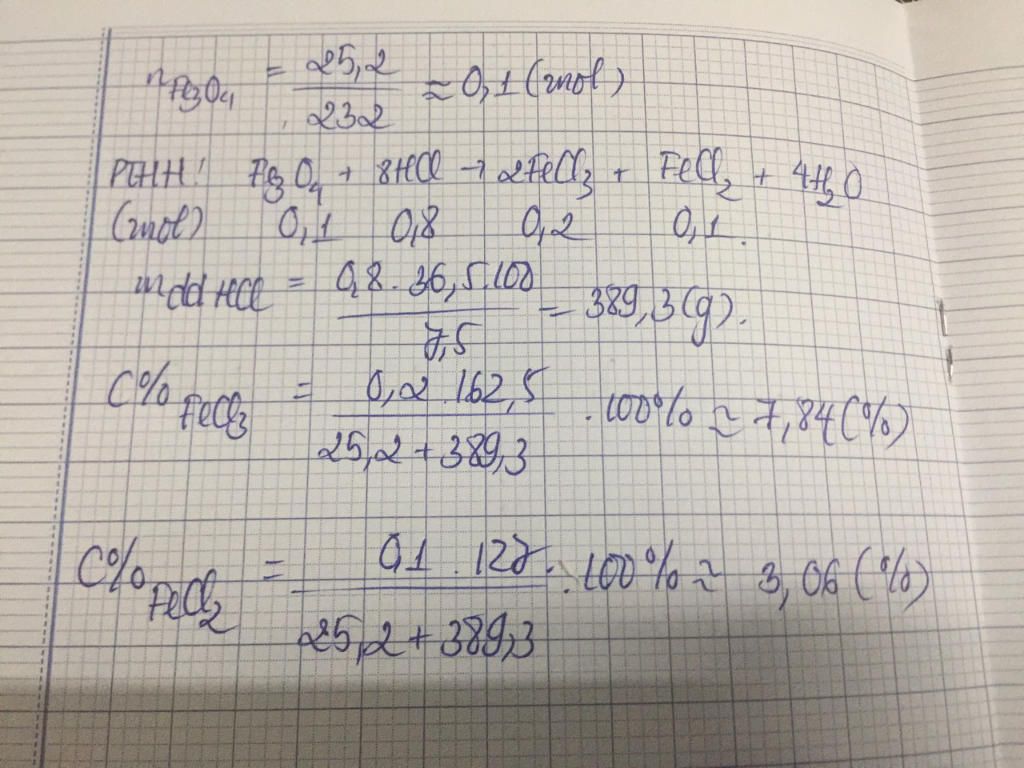 nFe3O4 = 25,2 / 232 ≈ 0,1 (mol)
PTHH: Fe3O4 + 8HCl → 2FeCl3 + FeCl2 + 4H2O
(mol) 0,1 0,8 0,2 0,1.
mdd HCl = 0,8 . 36,5.100 / 7,5 = 389,3 (g).
C% FeCl3 = 0,2 . 162,5 / 25,2 + 389,3 . 100% ≈ 7,84 (%)
C% FeCl2 = 0,1 . 127 / 25,2 + 389,3 . 100% ≈ 3,06 (%)